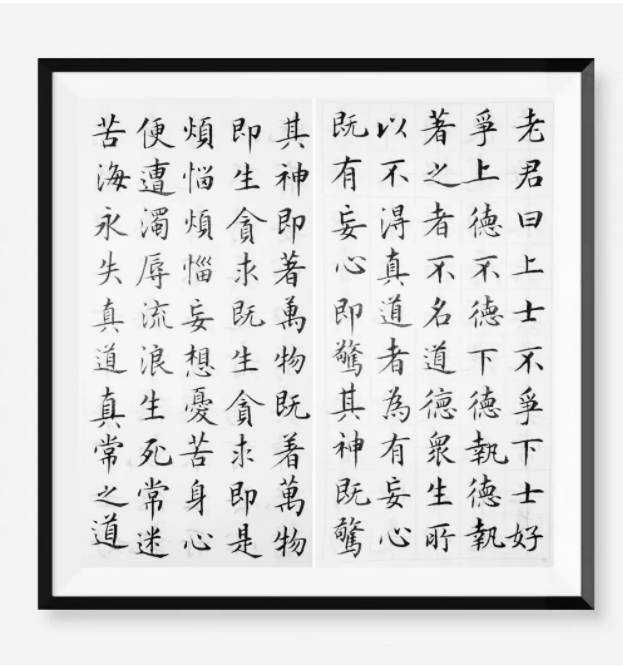 老君曰上士不爭下士好
爭上德不德下德執德執
著之者不名道德眾生所
以不淂真道者為有妄心
既有妄心即驚其神既驚
其神即著萬物既着萬物
即生貪求既生貪求即是
煩惱煩惱妄想憂苦身心
便遭濁辱流浪生死常迷
苦海永失真道真常之道